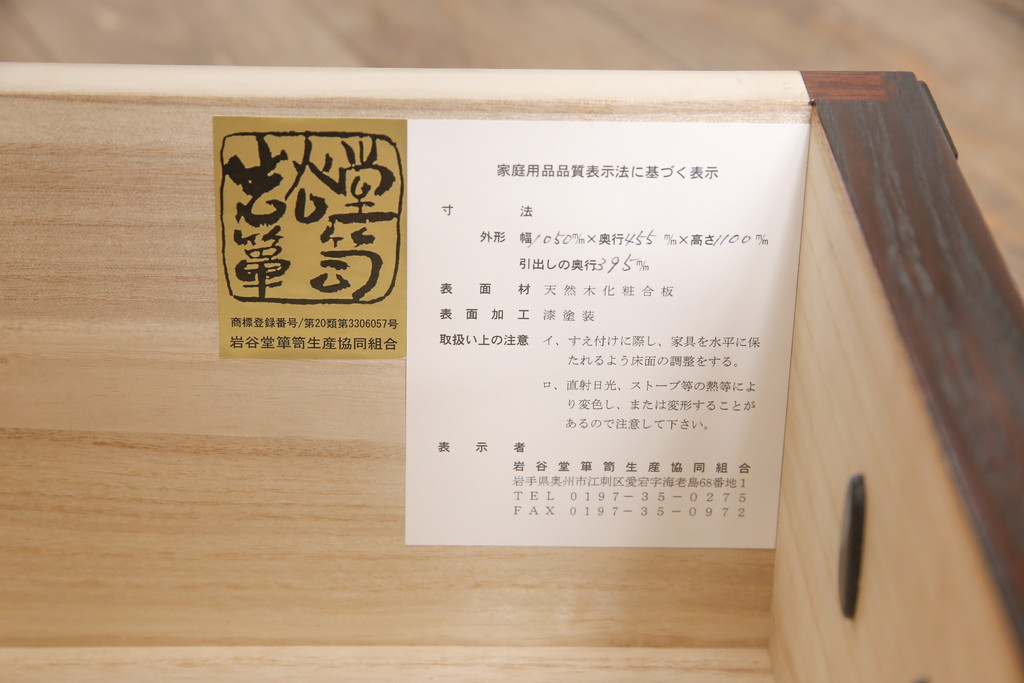 岩谷堂
箪笥
商標登録番号/第20類第3306057号
岩谷堂箪笥生産協同組合
家庭用品品質表示法に基づく表示
寸法
外形 幅1050m/m×奥行455m/m×高さ1100m/m
引出しの奥行395m/m
表面材 天然木化粧合板
表面加工 漆塗装
取扱い上の注意 イ、すえ付けに際し、家具を水平に保
たれるよう床面の調整をする。
ロ、直射日光、ストーブ等の熱等によ
り変色し、または変形することが
あるので注意して下さい。
表示者
岩谷堂箪笥生産協同組合
岩手県奥州市江刺区愛宕字海老島68番地1
TEL 0197-35-0275
FAX 0197-35-0972